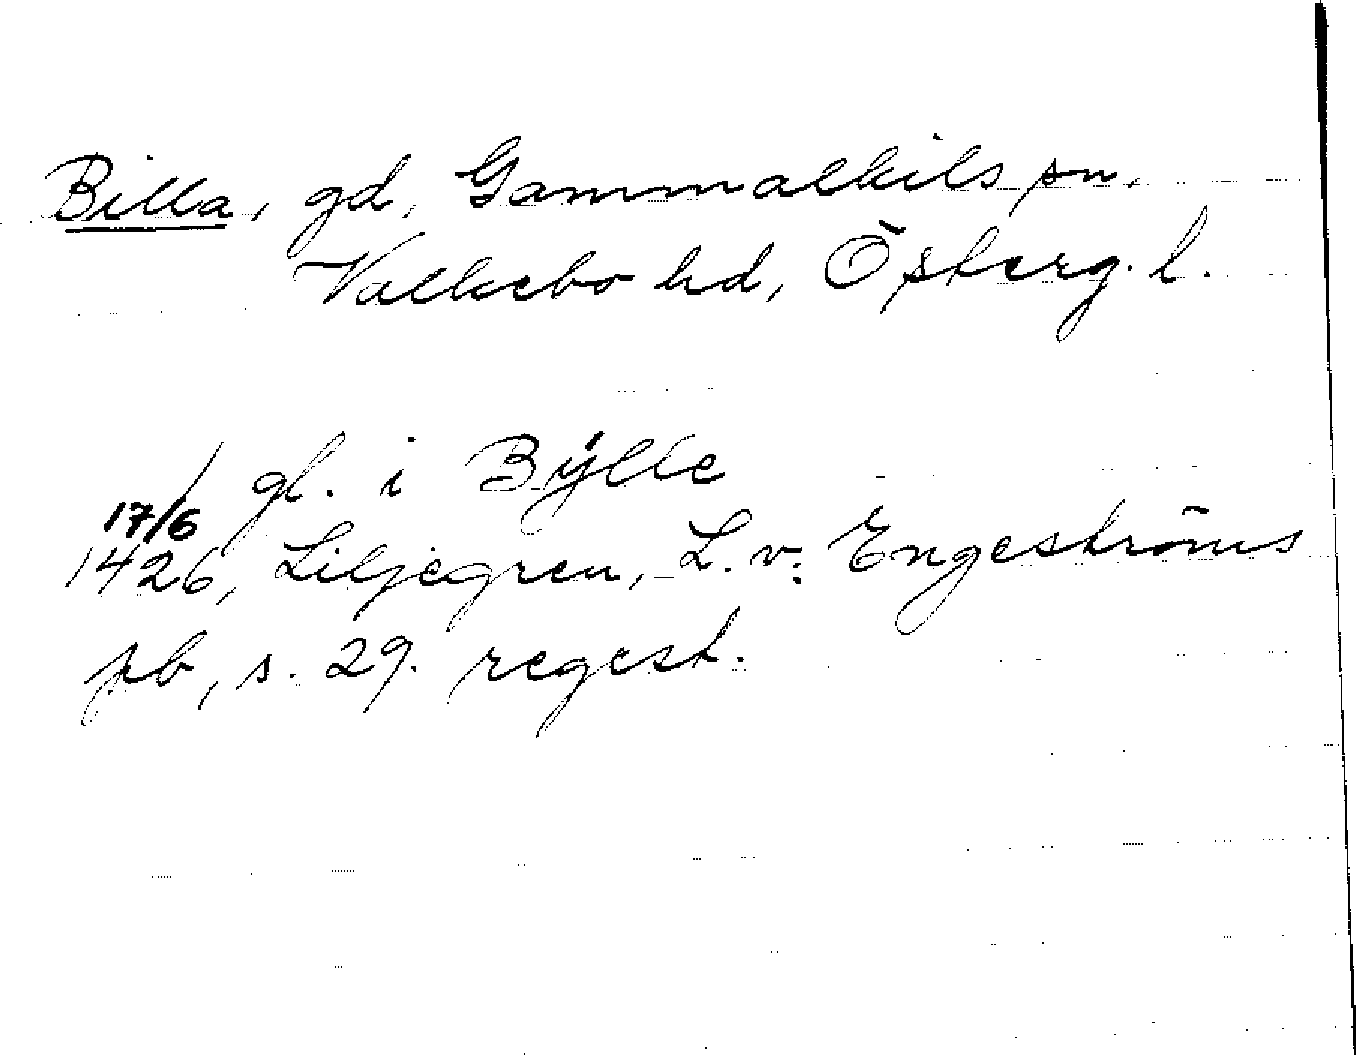 Billa, gd, Gammalkils sn.
Valkebo hd, Österg. l.
/ gl. i Bÿlle
17/6
1426, Liljegren, L. v. Engeströms
pb, s. 29. regest.